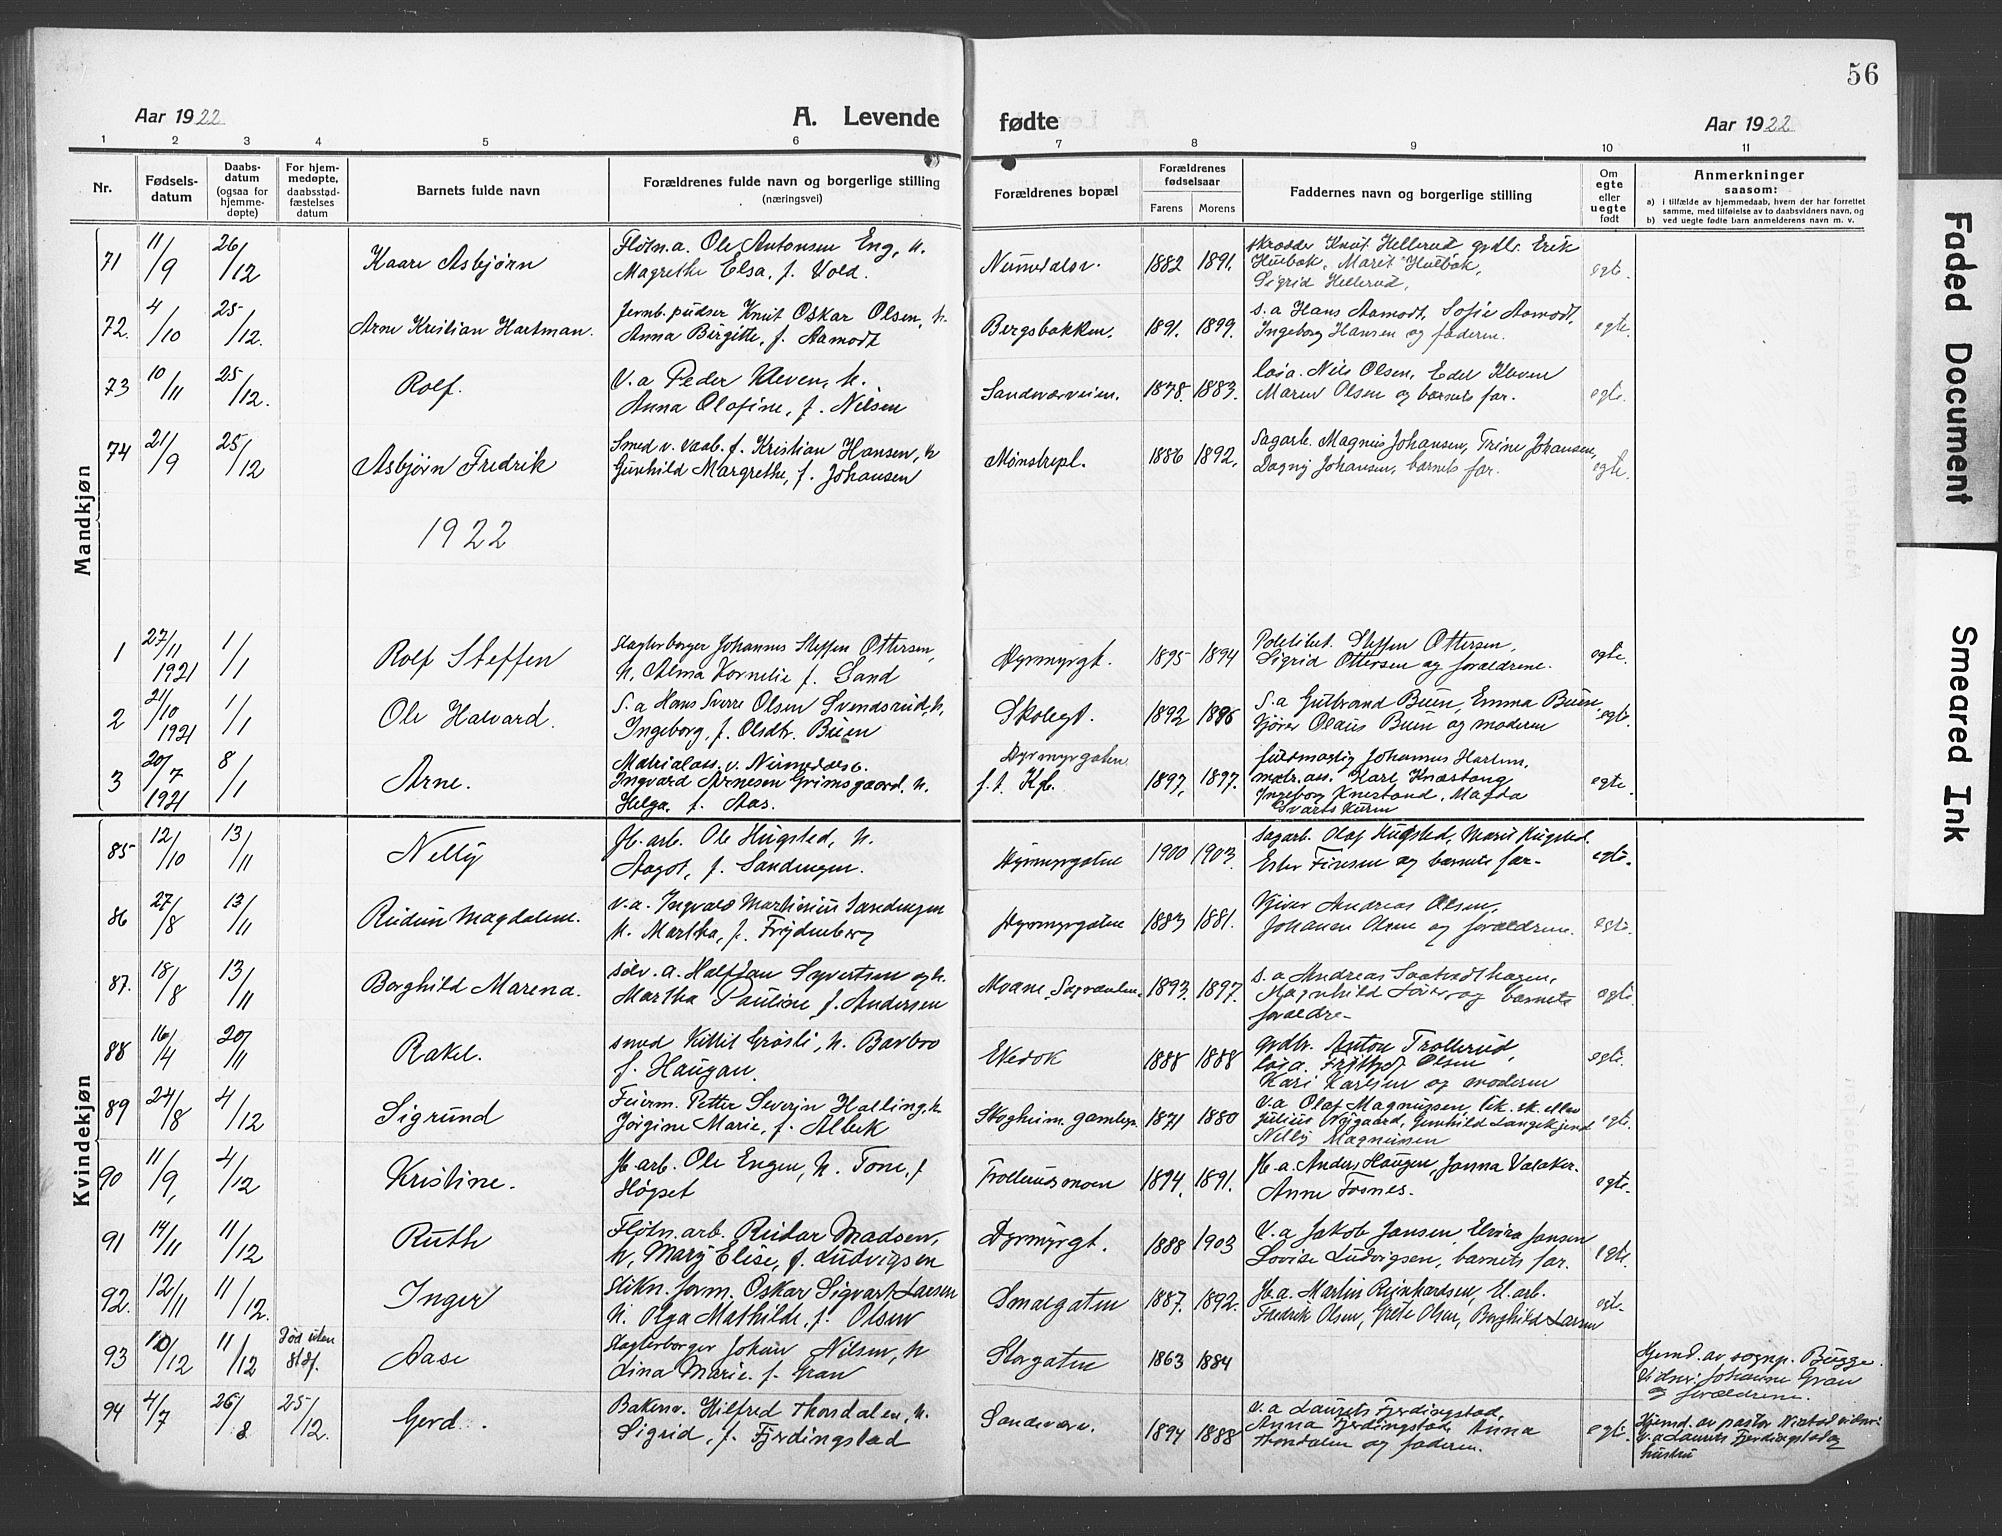 56
Aar 1922
A. Levende
fødte
Aar 1922
1 2 3 4 5 6 7 8 9 10 11
Nr.
Fødsels-
datum
Daabs-
datum
(ogsaa for
hjemme-
døpte)
For hjem-
medøpte,
daabsstad-
fæstelses
datum
Barnets fulde navn
Forældrenes fulde navn og borgerlige stilling
(næringsvei)
Forældrenes bopæl
Forældrenes
fødselsaar
Farens Morens
Faddernes navn og borgerlige stilling
Om
egte
eller
uegte
født
Anmerkninger
saasom:
a) i tilfælde av hjemmedaab, hvem der har forrettet
samme, med tilføielse av to daabsvidners navn, og
b) ved uegte fødte barn anmelderens navn m. v.
Mandkjøn
71 11/9 26/12 Kaare Asbjørn Fløtn.a. Ole Antonsen Eng, h. Magrethe Elsa, f. Vold. Numedalsv. 1882 1891. Knut Hellerud grdbr. Erik
Hulbak, Marit Hulbak,
Sigrid Hellerud, egte.
72. 4/10 25/12. Arne Kristian Hartman. Jernb.pudser Knut Oskar Olsen, h.
Anna Birgitte, f. Aamodt Bergsbakken. 1891. 1899. s.a Hans Aamodt, Sofie Aamodt,
Ingeborg Hansen og faderen. egte.
73 10/11 25/12. Rolf. V.a Peder Kleven, h.
Anna Olofine, f. Nilsen Sandsværveien. 1878. 1883. Nils Olsen, Edel Kleven
Maren Olsen og barnets far. egte.
74 21/9 25/12 Asbjørn Fredrik Smed v. vaab.f. Kristian Hansen, h
Gunhild Margrethe, f. Johansen Mønstrepl. 1886 1892. Sagarb. Magnus Johansen, Trine Johansen,
Dagny Johansen, barnets far. egte.
1922
1 27/11 1921 1/1 Rolf Steffen Slagterborger Johannes Steffen Ottersen,
h. Alma Kornelie f. Sand Dyrmyrgt. 1895 1894 Politibet. Steffen Ottersen,
Sigrid Ottersen og forældrene. egte.
2 21/10 1921 1/1 Ole Halvard. S.a Hans Sverre Olsen Svendsrud, h,
Ingeborg, f. Olsdtr. Buen Skolegt. 1892 1886 S.a Gulbrand Buen, Emma Buen,
Kjører Olaus Buen og moderen egte.
3 20/7 1921 8/1 Arne. Matrialass. v. Numedalsb.
Ingvard Arnesen Grimsgaard, h.
Helga, f. Aas. Dyrmyrgaten
f.t. Kfb. 1897, 1897. fuldmægtig Johannes
matr.ass. Karl Knestang
Ingeborg Magda egte.
Kvindekjøn
85 12/10 13/11 Nelly Jb. arb. Ole Hugsted, h.
Aagot, f. Sandengen. Dyrmyrgaten 1900 1903. Sagarb. Olaf Hugsted, Marie Hugsted.
Ester og barnets far. egte.
86 27/8 13/11 Reidun Magdalene. v.a. Ingvald Martinius Sandengen
h. Martha, f. Frydenberg Dyrmyrgaten 1883 1881. Kjører Andreas Olsen,
Johanne Olsen og forældrene. egte.
87. 18/8 13/11 Borghild Marena. sølv.a. Halfdan Syvertsen og h.
Martha Pauline f. Andersen Moane, 1893. 1897. s.a Andreas
Magnhild og barnets
forældre. egte
88 16/4 20/11 Rakel. smed Kittil Grøsli, h. Barbro
f. Haugan. Ekedok 1888 1888 grdbr. Anton Trollerud,
Fritjof Olsen
Kari Karlsen og moderen egte.
89 24/8 4/12 Sigrund Feierm. Petter Severin Halling, h.
Jørgine Marie, f. Albek Skogheim 1871 1880 V.a Olaf Magnussen,
Julius Nygaard, Gunhild Langekjend
Nelly Magnussen egte.
90 11/9, 4/12 Kristine. Jb. arb. Ole Engen, h. Tone, f
Høpset Trollerudmoen 1894. 1891. Jb.a. Anders Haugen, Janna Valaker.
Anne Fosnes. egte.
91 14/11 11/12 Ruth Fløtn.arb. Reidar Madsen,
h, Mary Elise, f. Ludvigsen Dyrmyrgt. 1888 1903 V.a Jakob Jansen, Elvira Jansen
Lovise Ludvigsen, barnets far. egte.
92. 12/11 11/12. Inger Stikn. form. Oskar Sigvart Larsen
h. Olga Mathilde, f. Olsen Smalgaten 1887. 1892. Jb.a. Martin Reinhardsen, El.arb.
Fredrik Olsen, Grete Olsen, Borghild Larsen egte
93 10/12 11/12 død uten
stdf. Aase Slagterborger Johan Nilsen, h
Lina Marie f. Gran Storgaten 1863 1884 Hjemd. av sognep. Bugge.
Vidner: Johanne Gran
og forældrene.
94 4/7 26/8 25/12. Gerd. Bakersv. Hilfred Thorsdalen, h.
Sigrid, f. Fjerdingstad Sandsvære. 1894 1888 v.a Laurits Fjerdingstad,
Anna Fjerdingstad, Anna
Thorsdalen og faderen. egte. Hjemd. av pastor
V.a Laurits Fjerdingstad og
hustru
Faded Document
Smeared Ink